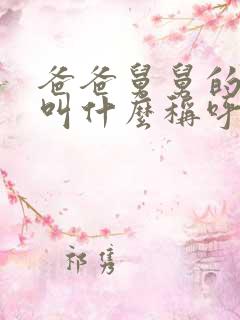 爸爸舅舅的
叫什麼稱呼
祁隽